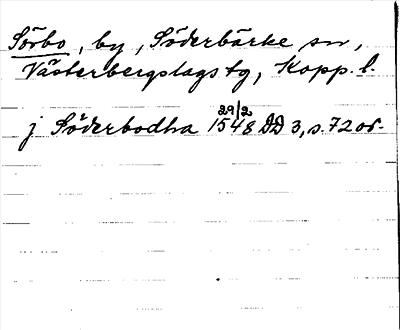 Sörbo, by, Söderbärke sn,
Västerbergslags tg, Kopp. l.
j Söderbodha 29/2 1548 DD 3, s. 72 or.